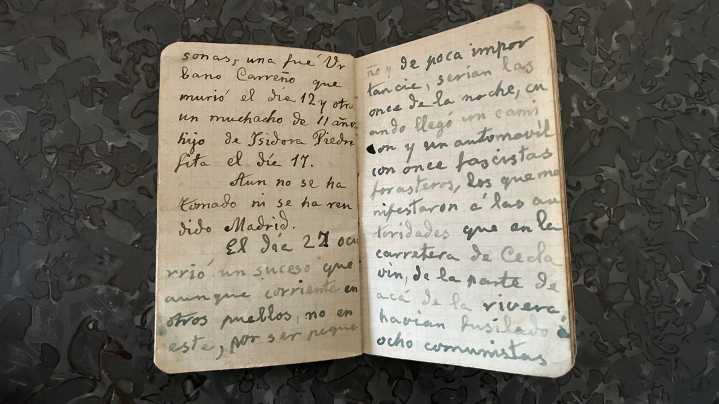 sonas; una fué Ur
bano Carreño que
murió el día 12 y otro
un muchacho de 11 años
hijo de Isidora Piedra
fita el díe 17.
Aun no se ha
tomado ni se ha ren
dido Madrid.
El día 27 ocu
rrió un suceso que
aunque corriente en
otros pueblos, no en
este, por ser peque
ño y de poca impor
tancie, serían las
once de la noche, cu
ando llegó un cami
on y un automovil
con once fascistas
forasteros, los que ma
nifestaron á las au
toridades que en la
carretera de Cecla
vin, de la parte de
acá de la rivera,
havian fusilado á
ocho comunistas